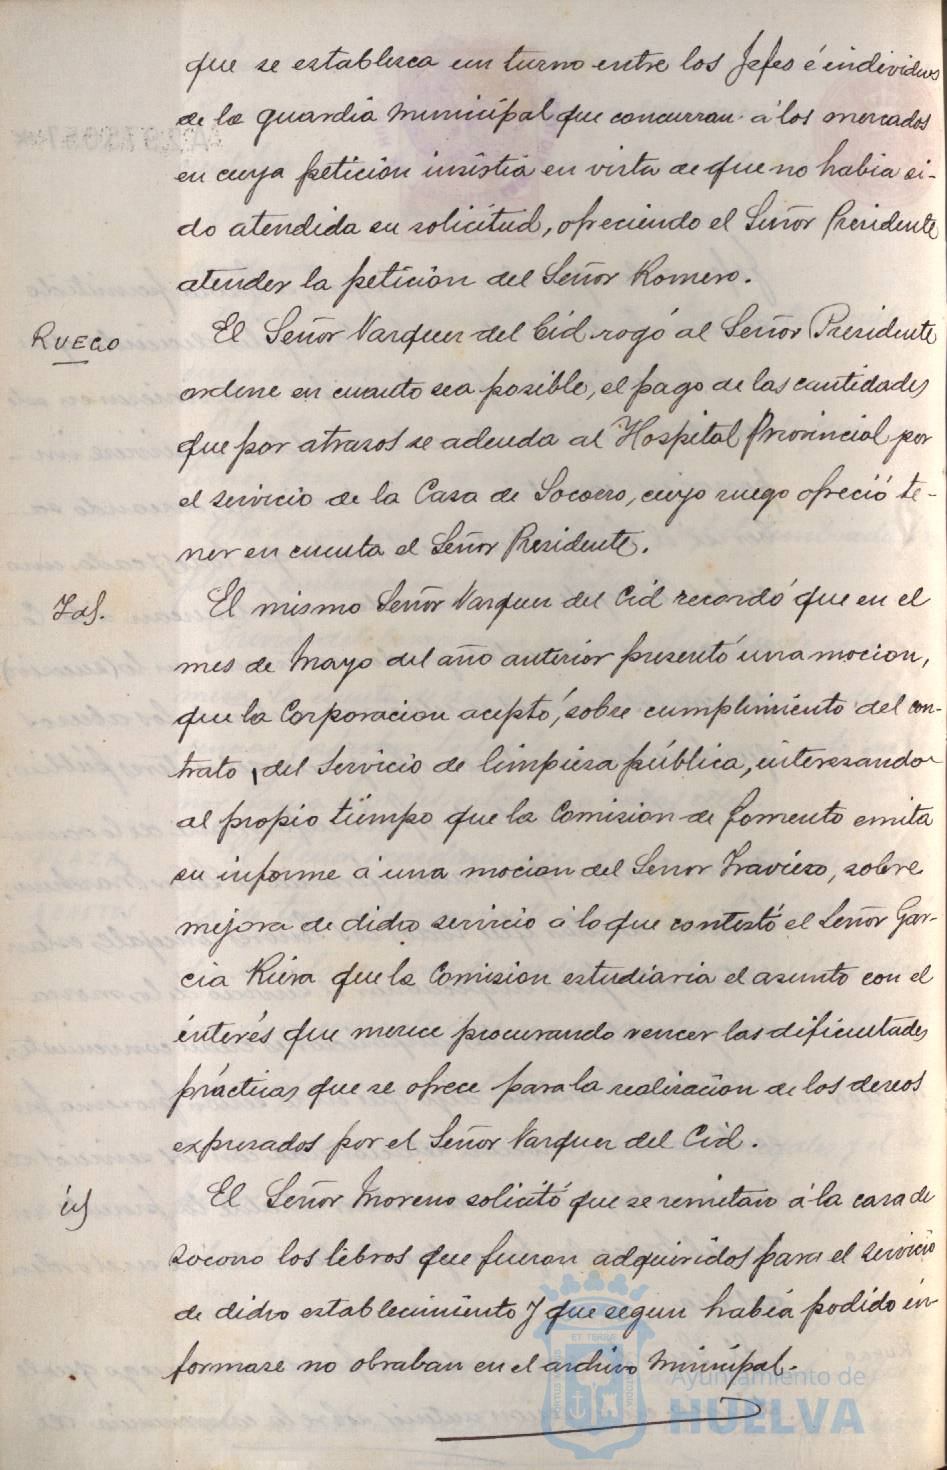 que se establezca un turno entre los Jefes é individuos
de la guardia municipal que concurran á los mercados
en cuya petición insistia en vista de que no habia si-
do atendida su solicitud, ofreciendo el Señor Presidente
atender la petición del Señor Romero.
RUEGO
El Señor Vazquez del Cid rogó al Señor Presidente
ordene en cuanto sea posible, el pago de las cantidades
que por atrasos se adeuda al Hospital Provincial por
el servicio de la Casa de Socorro, cuyo ruego ofreció te-
ner en cuenta el Señor Presidente.
Id.
El mismo Señor Vazquez del Cid recordó que en el
mes de Mayo del año anterior presentó una mocion,
que la Corporacion aceptó, sobre cumplimiento del con-
trato, del servicio de limpieza pública, interesando
al propio tiempo que la Comision de fomento emita
su informe á una mocion del Señor Travieso, sobre
mejora de dicho servicio á lo que contestó el Señor Gar-
cia Riera que la Comision estudiaria el asunto con el
interés que merece procurando vencer las dificultades
prácticas que se ofrece para la realización de los deseos
expresados por el Señor Vazquez del Cid.
id
El Señor Moreno solicitó que se remitan á la casa de
socorro los libros que fueron adquiridos para el servicio
de dicho establecimiento y que segun habia podido in-
formarse no obraban en el archivo Municipal.
Ayuntamiento de
HUELVA